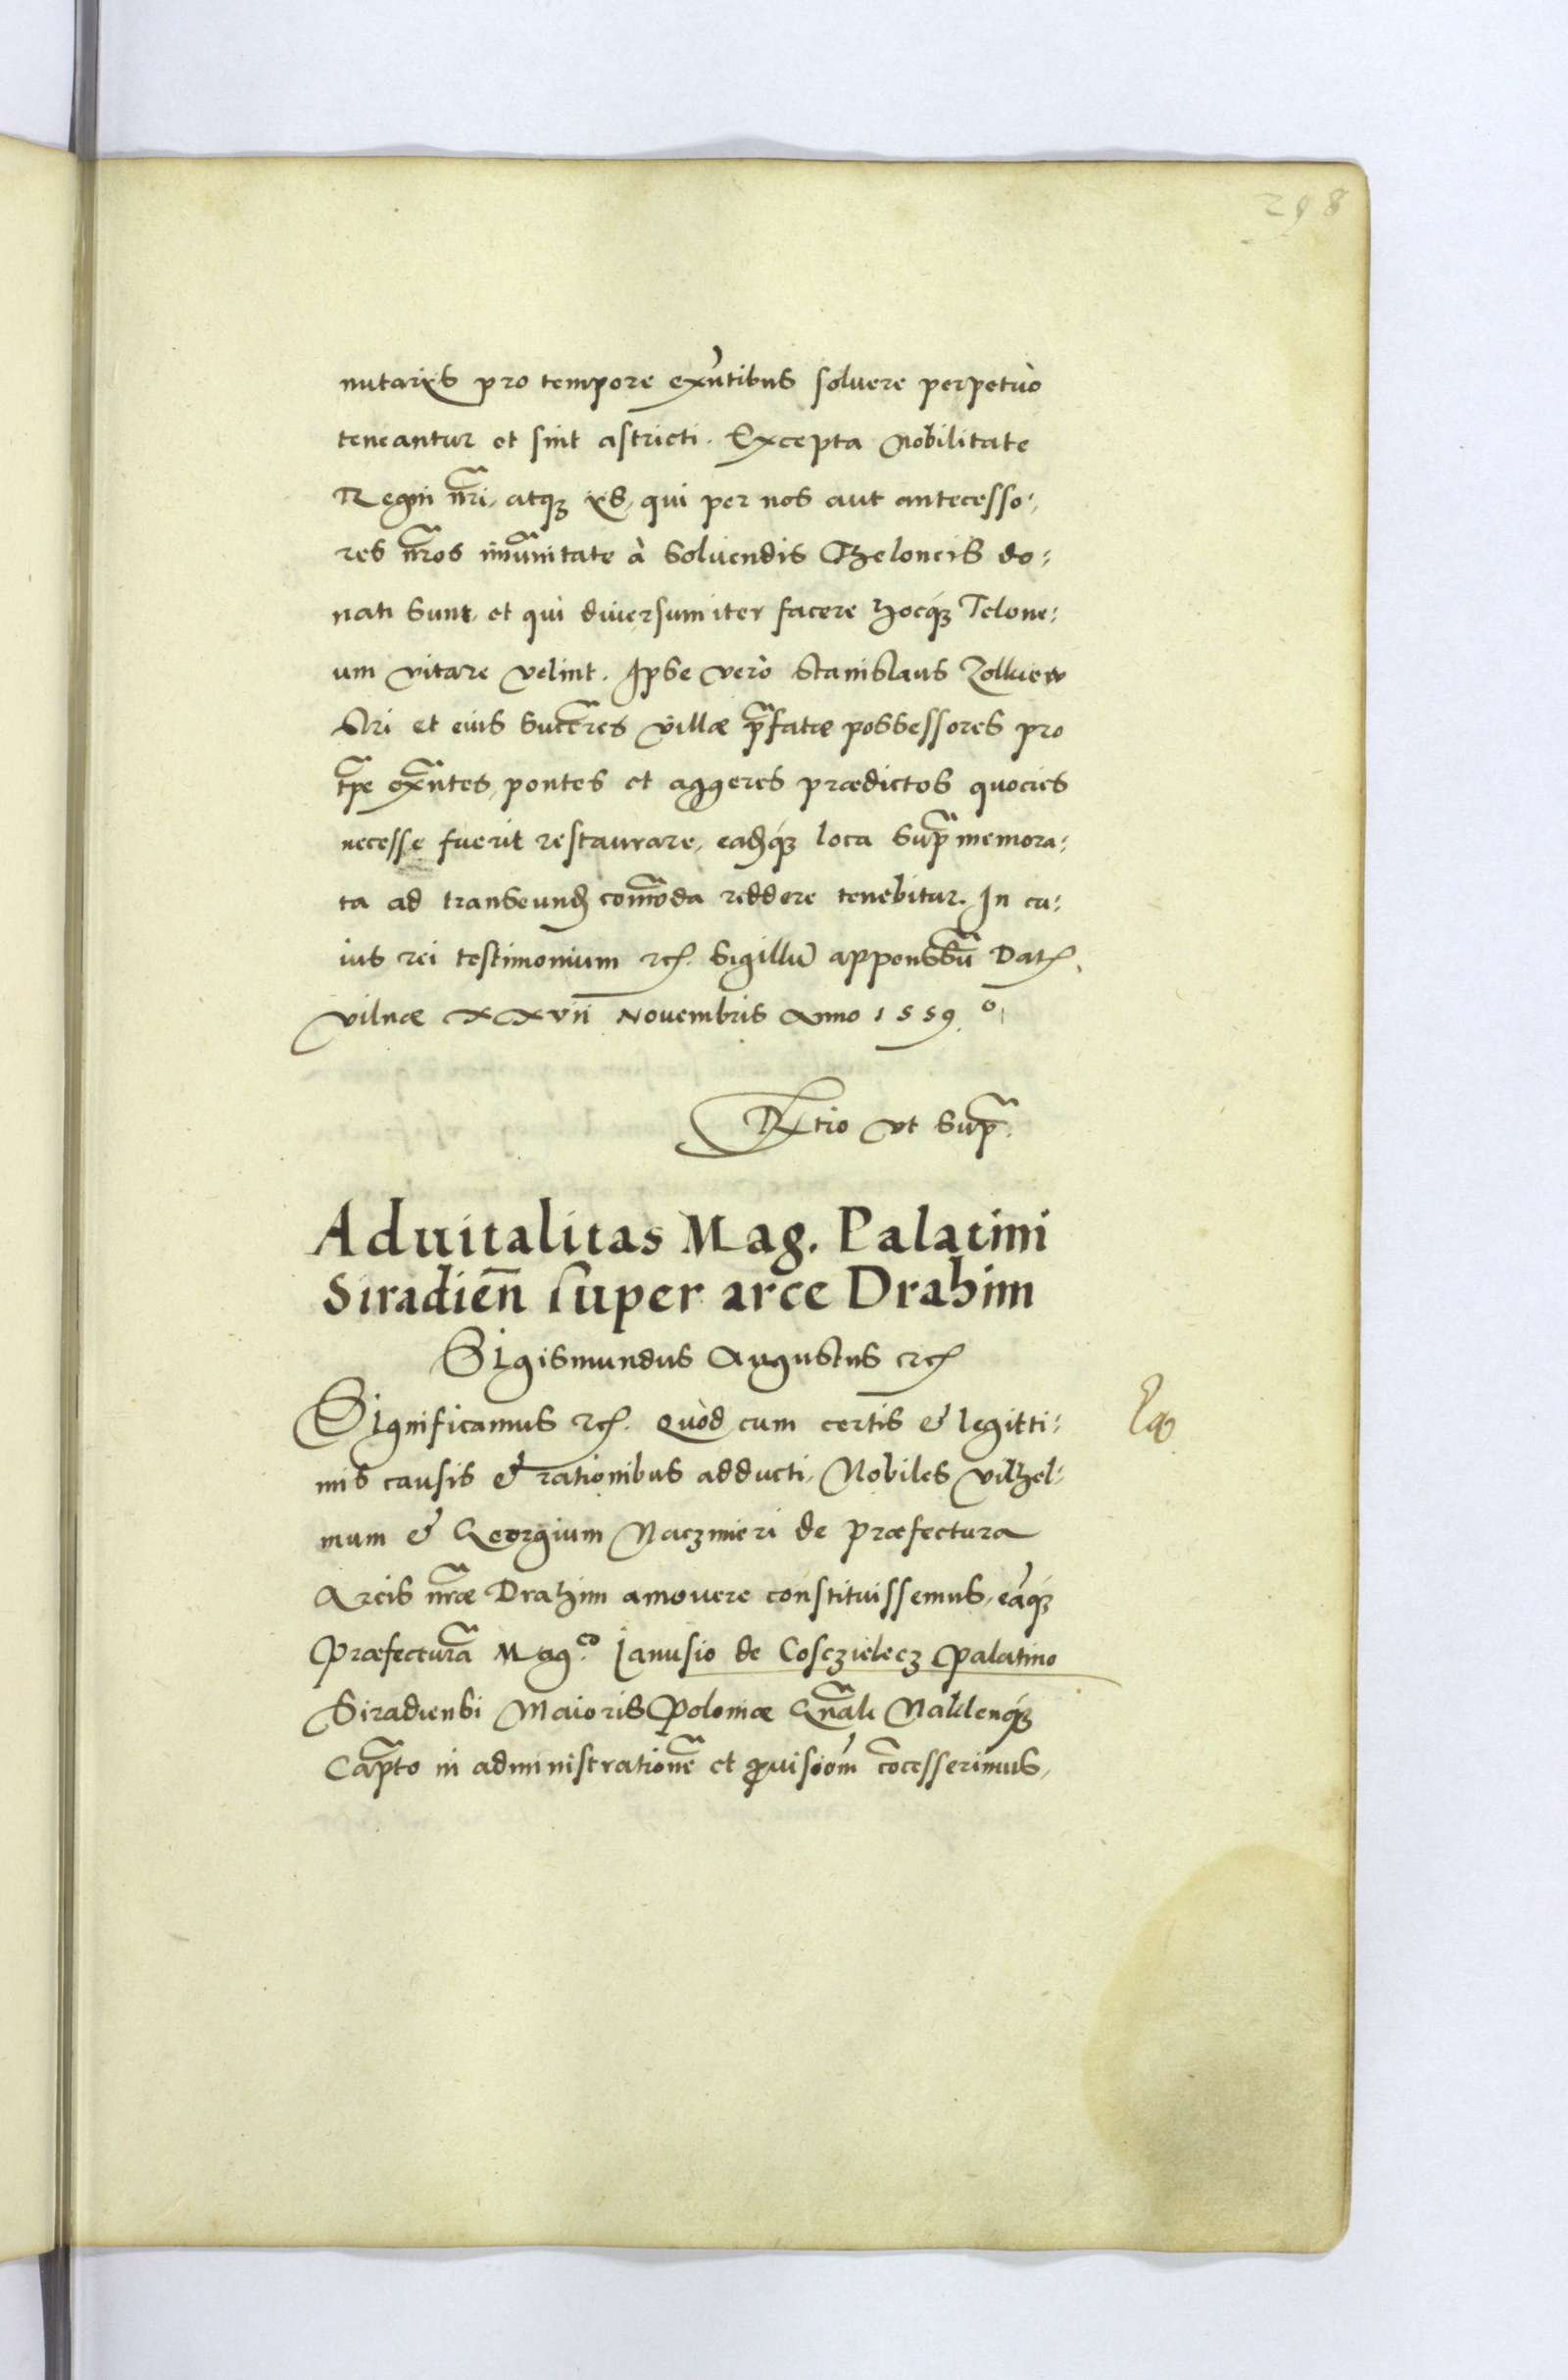 298
nutarijs pro tempore exñtibus soluere perpetuò
teneantur et sint astricti. Excepta Nobilitate
Regni nr̃i, atq; ijs, qui per nos aut antecesso:
res nr̃os im̃unitate à soluendis Theloneis do:
nati sunt, et qui diuersum iter facere hocq́; Telone:
um vitare velint. Ipse verò Stanislaus Zolkiew
ski et eius succ̃res villæ p̃fatæ possessores pro
tp̃e exñtes, pontes et aggeres prædictos quocies
necesse fuerit restaurare, eadq́; loca sup̃ memora:
ta ad transeund com̃oda reddere tenebitur. In cu:
ius rei testimonium etc. Sigillũ appenssũ Dat.
Vilnæ XXVII Novembris Anno 1559.º
Rtio vt sup̃.
Aduitalitas Mag. Palatini
Siradieñ super arce Drahim
Sigismundus Augustus etc
Significamus etc. Quòd cum certis & legitti:
mis causis & rationibus adducti, Nobiles Vilhel:
mum & Georgium Naczmieri de Præfectura
Arcis nr̃æ Drahim amouere constituissemus, eãq́;
Præfecturã Mag.co Ianusio de Cosczielecz Palatino
Siradiensi Maioris Poloniæ Gñali Naklenq́;
Cap̃to in administrationẽ et ꝓuisiom̃ cõcesserimus,